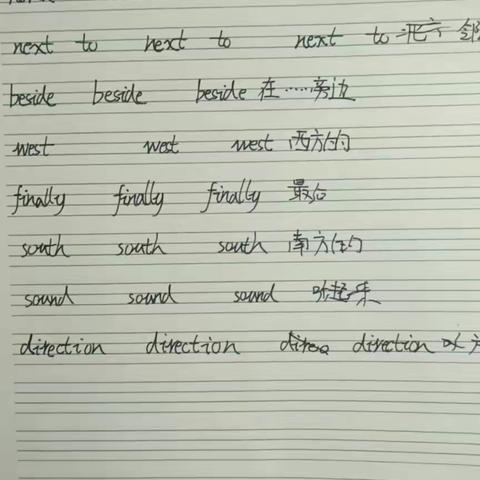 next to next to next to
beside beside beside 在……旁边
west west west 西方的
finally finally finally 最后
south south south 南方的
sound sound sound 听起来
direction direction direction